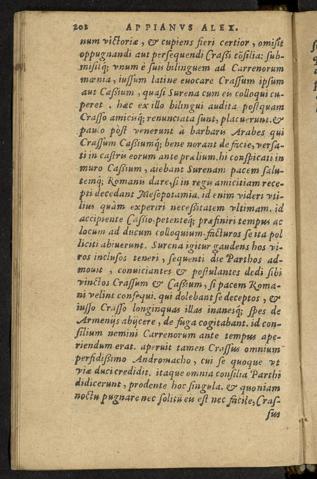 202 APPIANVS ALEX.
num victoriæ, & cupiens fieri certior, omisit
oppugnandi aut persequendi Crassi cõsilia: sub-
misitq; vnum è suis bilinguem ad Carrenorum
mœnia, iussum latine euocare Crassum ipsum
aut Cassium, quasi Surena cum eis colloqui cu-
peret. hæc ex illo bilingui audita postquam
Crasso amicisq; renunciata sunt, placuerunt. &
paulo post venerunt à barbaris Arabes qui
Crassum Cassiumq; bene norant de facie, versa-
ti in castris eorum ante prælium. hi conspicati in
muro Cassium, aiebant Surenam pacem salu-
temq; Romanis dare, si in regis amicitiam rece-
pti decedant Mesopotamia. id enim videri vti-
lius quàm experiri necessitatem vltimam. id
accipiente Cassio, petenteq; præfiniri tempus ac
locum ad ducum colloquium, facturos se ita pol
liciti abiuerunt. Surena igitur gaudens hos vi-
ros inclusos teneri, sequenti die Parthos ad-
mouit, conuiciantes & postulantes dedi sibi
vinctos Crassum & Cassium, si pacem Roma-
ni velint consequi. qui dolebant se deceptos, &
iusso Crasso longinquas illas inanesq; spes de
Armenijs abijcere, de fuga cogitabant. id con-
silium nemini Carrenorum ante tempus ape-
riendum erat. aperuit tamen Crassus omnium
perfidissimo Andromacho, cui se quoque vt
viæ duci credidit. itaque omnia consilia Parthi
didicerunt, prodente hoc singula. & quoniam
noctu pugnare nec solitũ eis est nec facile, Cras-
sus